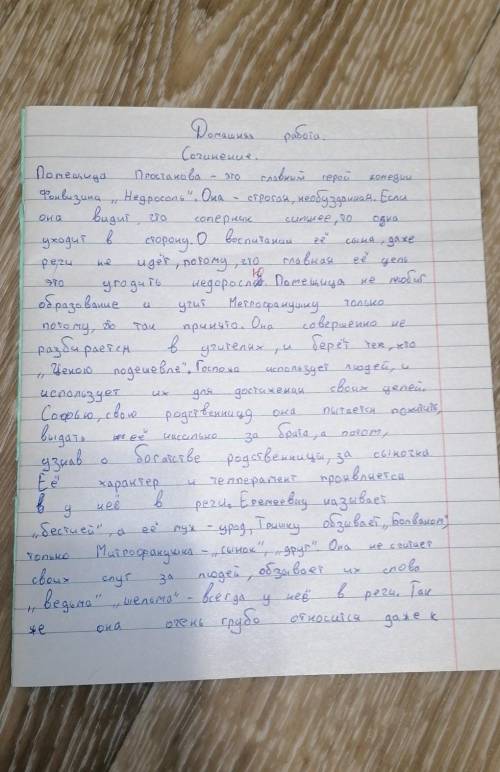 Домашняя работа.
Сочинение.
Помещица Простакова - это главный герой комедии
Фонвизина „Недросоль". Она - строгая, необузданная. Если
она видит, что соперник сильнее, то одна
уходит в сторону. О воспитании её сына, даже
речи не идёт, потому, что главная её цель
это угодить недорослю. Помещица не любит
образование и учит Метрофанушку только
потому, что так принято. Она совершенно не
разбирается в учителях, и берёт тех, кто
„Ценою подешевле". Госпожа использует людей, и
использует их для достижения своих целей.
Софью, свою родственницу она пытается
выдать её насильно за брата, а потом,
узнав о богатстве родственницы, за сыночка
Её характер и темперамент проявляется
в у неё в речи. Еремеевну называет
„бестией", а её муж - урод, Тришку обзывает „Болваном",
только Митрофанушка - „сынок", „друг". Она не считает
своих слуг за людей, обзывает их слова
„ведьма" „шельма" - всегда у неё в речи. Так
же она очень грубо относится даже к